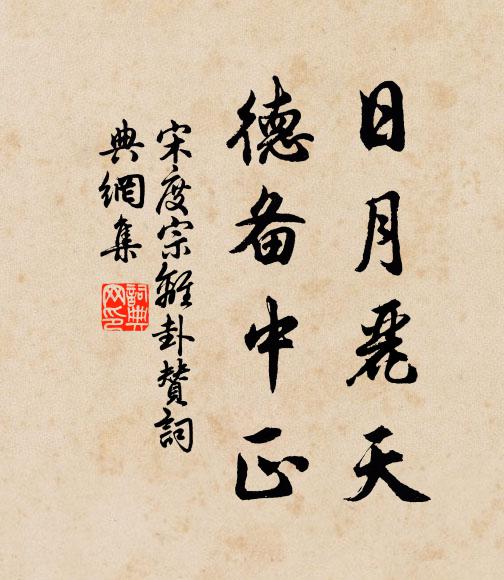 日月麗天
德备中正
宋度宗離卦贊詞
典網集
詞典网印